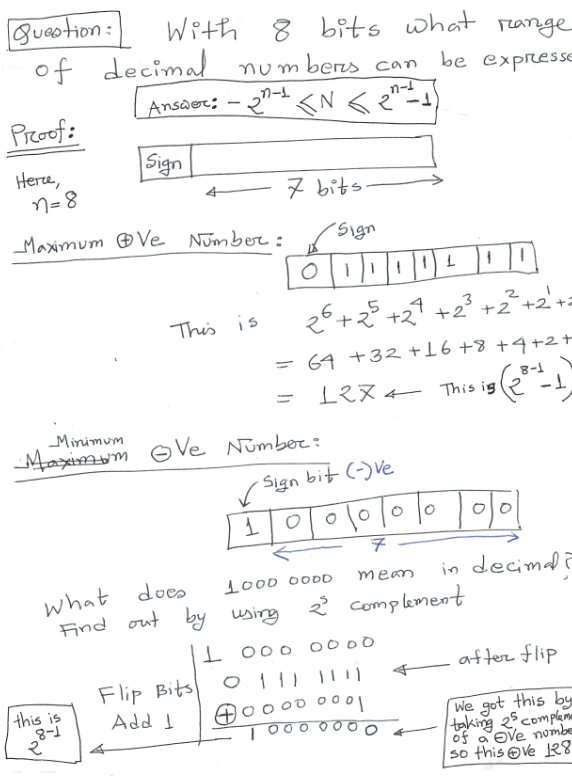 Question: With 8 bits what range
of decimal numbers can be expresse
Answer: - 2^(n-1) ≤ N ≤ 2^(n-1) - 1
Proof:
Sign
Here,
n=8
7 bits
Maximum ⊕Ve Number:
Sign
0 1 1 1 1 1 1 1
This is 2^6 + 2^5 + 2^4 + 2^3 + 2^2 + 2^1 +
= 64 + 32 + 16 + 8 + 4 + 2 +
= 127 ← This is (2^(8-1) - 1)
Minimum
Maximum ⊖Ve Number:
Sign bit (-)Ve
1 0 0 0 0 0 0 0
7
What does 1000 0000 mean in decimal?
Find out by using 2^s complement
1 000 0000
0 111 1111 ← after flip
Flip Bits
Add 1
⊕ 0000 0001
1 000 0000
this is
2^(8-1)
We got this by
taking 2^s compleme
of a ⊖Ve numbe
so this ⊕ve 128